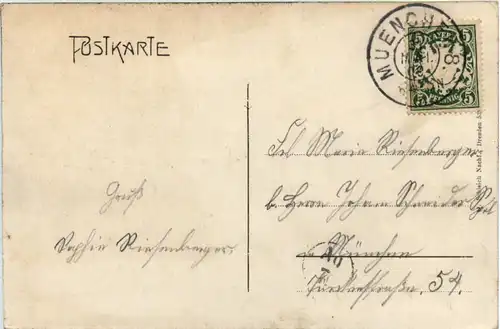 POSTKARTE
MUENCHEN
BAYERN
5 5
PFENNIG
Gruß
Sophie Riesenberger
Frl Maria Riesenberger
b. Herrn Johann Schneider
München
54.